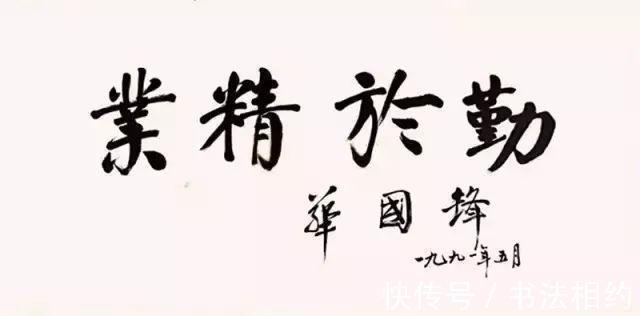 業精於勤
華國鋒
一九九一年五月
快传号/书法相约